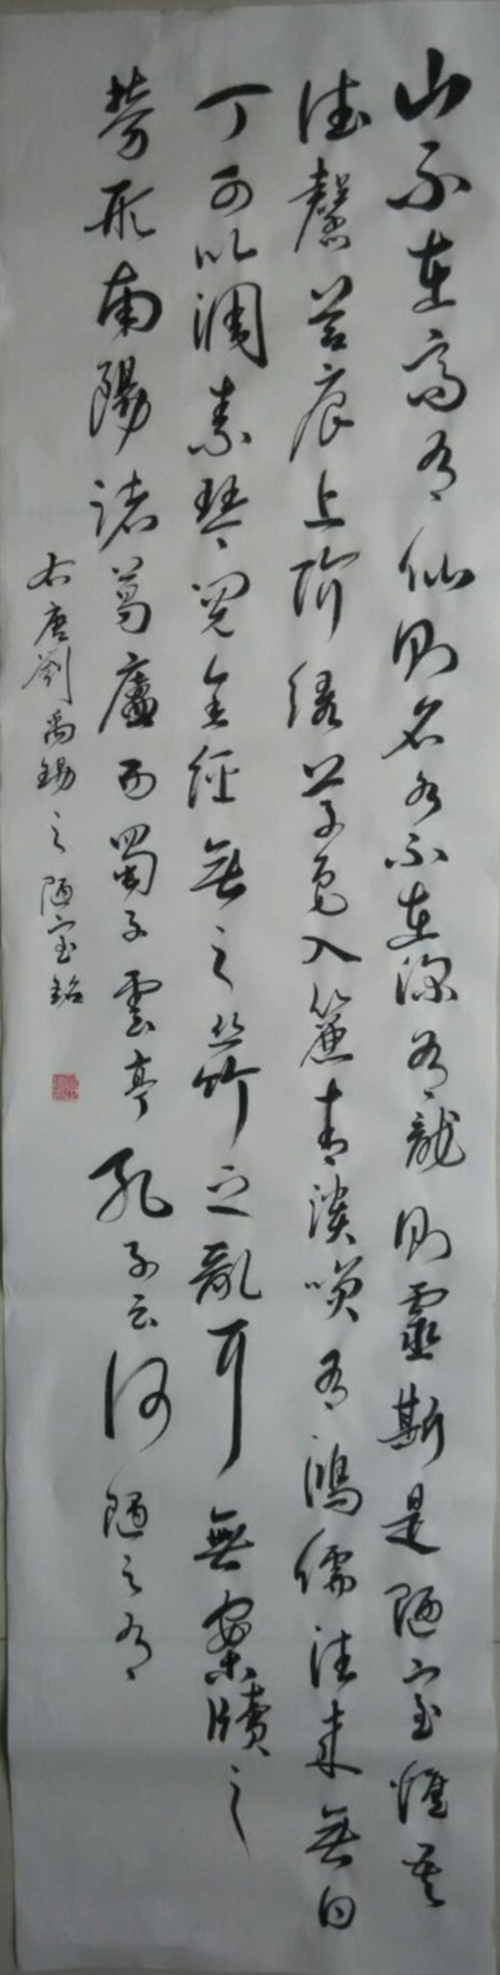 山不在高有仙则名水不在深有龍则靈斯是陋室惟吾
德馨苔痕上階绿草色入簾青談笑有鴻儒往来無白
丁可以调素琴阅金經無絲竹之亂耳無案牘之
劳形南陽諸葛廬西蜀子雲亭孔子云何陋之有
右唐劉禹錫之陋室銘